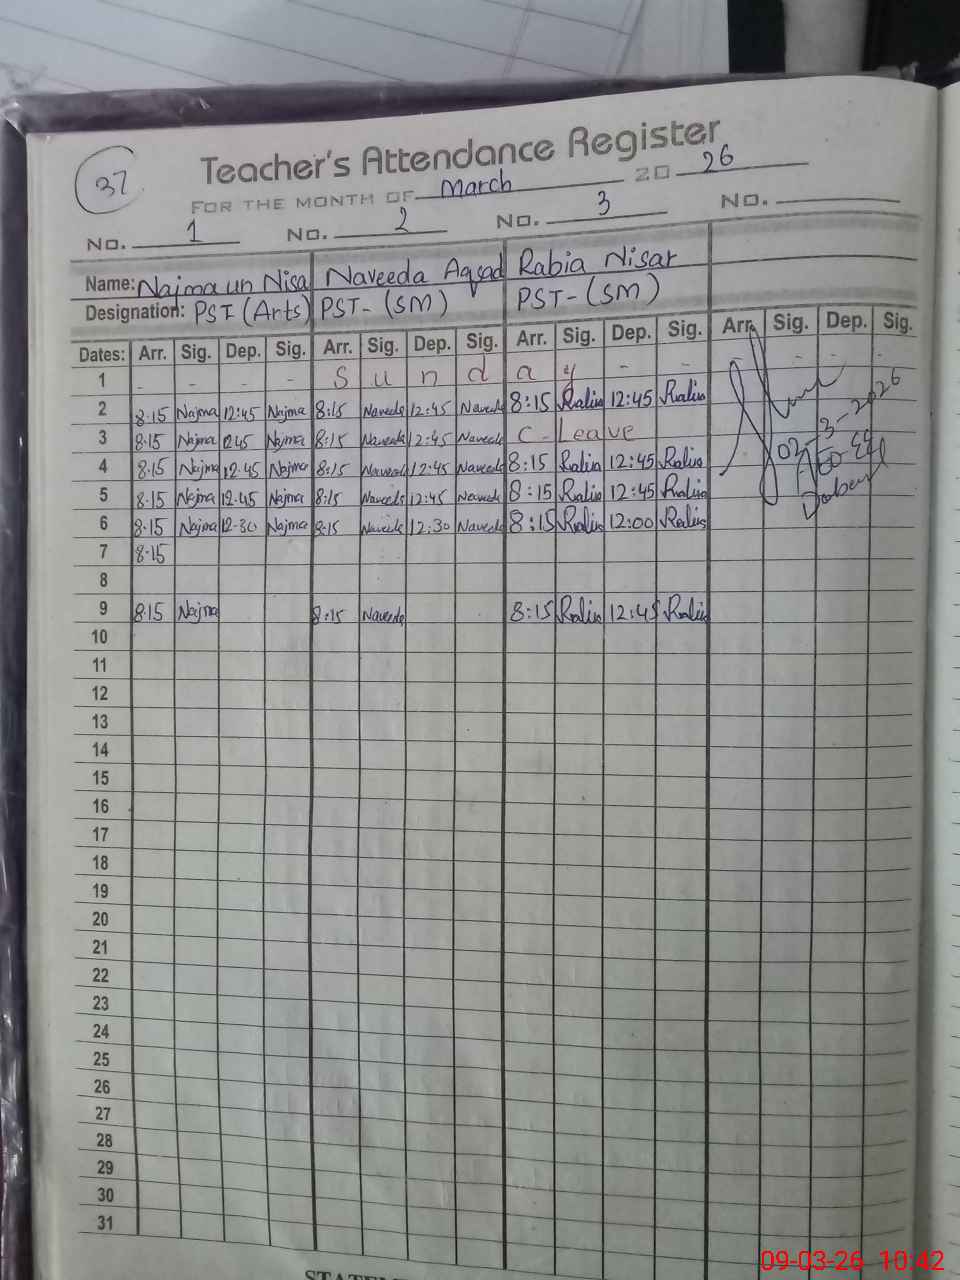 37
Teacher's Attendance Register
FOR THE MONTH OF March 20 26
No. 1 No. 2 No. 3 No.
Name: Najma un Nisa Naveeda Aqsad Rabia Nisar
Designation: PST (Arts) PST- (SM) PST- (SM)
Dates: Arr. Sig. Dep. Sig. Arr. Sig. Dep. Sig. Arr. Sig. Dep. Sig. Arr. Sig. Dep. Sig.
1 - - - - S u n d a y - - - - - -
2 8:15 Najma 12:45 Najma 8:15 Naveeda 12:45 Naveeda 8:15 Rabia 12:45 Rabia
3 8:15 Najma 12:45 Najma 8:15 Naveeda 12:45 Naveeda C-Leave
4 8:15 Najma 12:45 Najma 8:15 Naveeda 12:45 Naveeda 8:15 Rabia 12:45 Rabia
5 8:15 Najma 12:45 Najma 8:15 Naveeda 12:45 Naveeda 8:15 Rabia 12:45 Rabia
6 8:15 Najma 12-30 Najma 8:15 Naveeda 12:30 Naveeda 8:15 Rabia 12:00 Rabia
7 8:15
8
9 8:15 Najma 8:15 Naveeda 8:15 Rabia 12:45 Rabia
10
11
12
13
14
15
16
17
18
19
20
21
22
23
24
25
26
27
28
29
30
31
02-3-2026
09-03-26 10:42